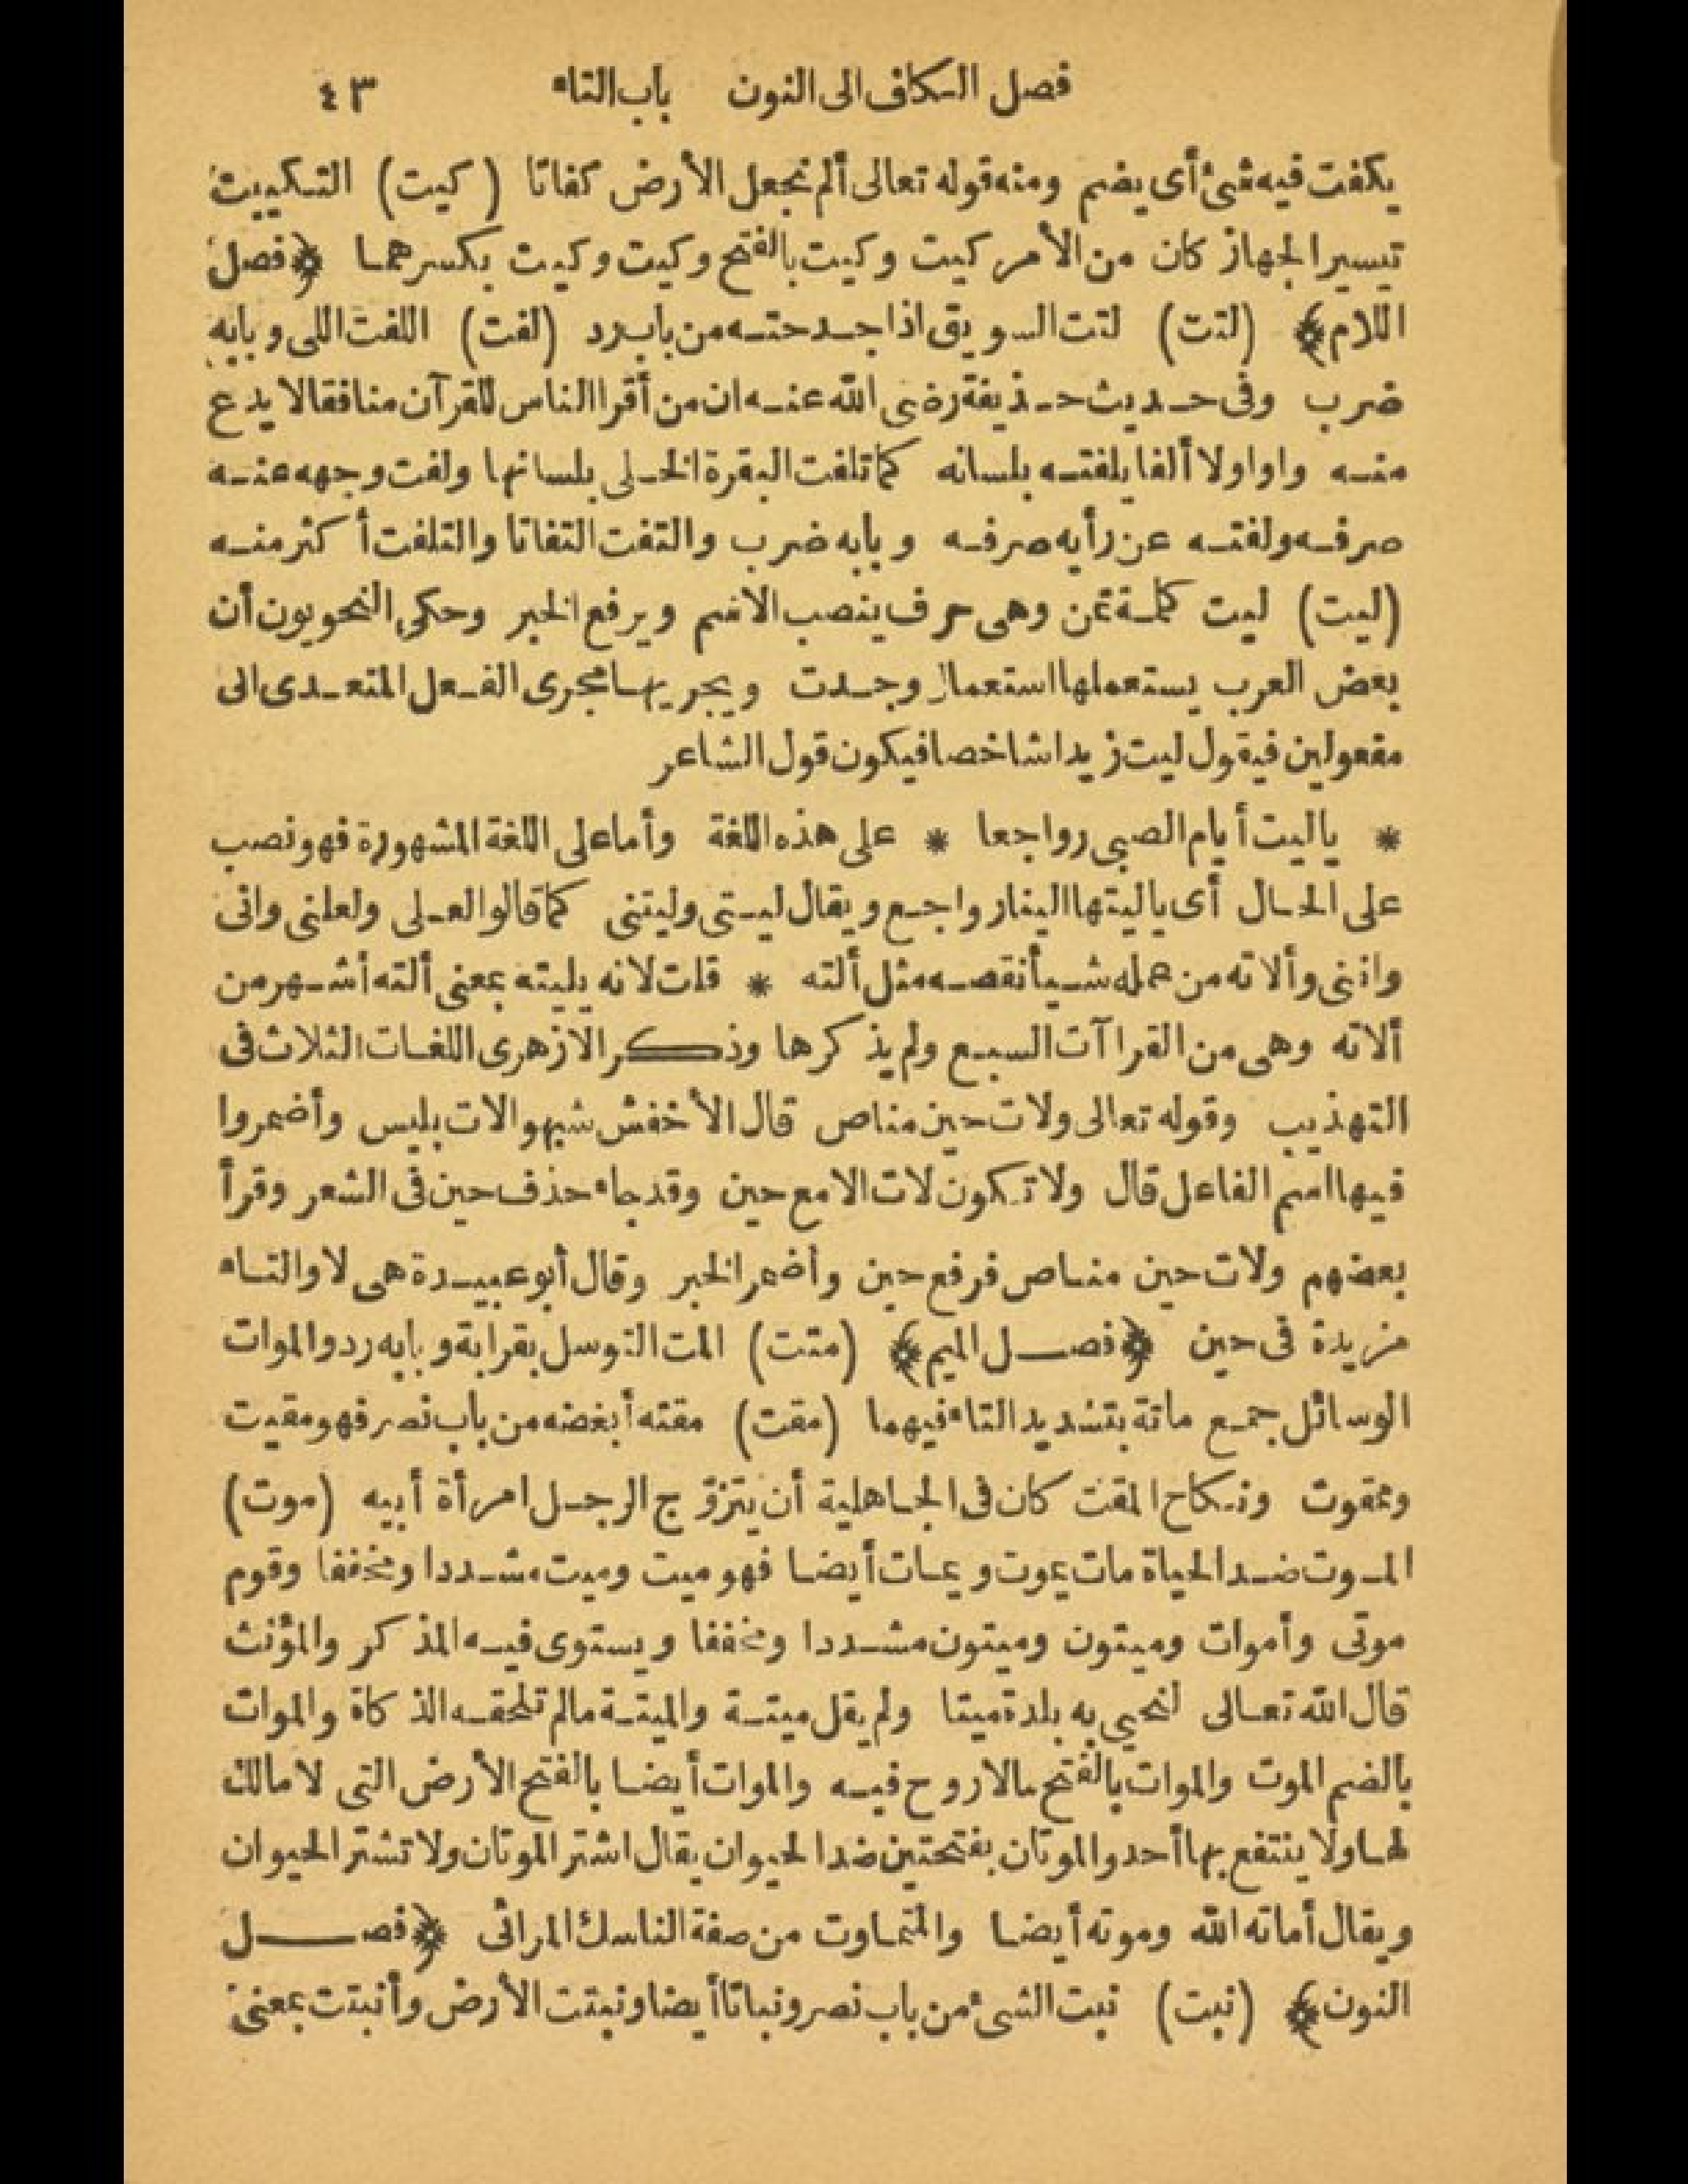 فصل الكاف الى النون باب التاء ٤٣
يكفت فيه شئ أى يضم ومنه قوله تعالى ألم نجعل الأرض كفاتا (كيت) التكييت
تيسير الجهاز كان من الأمر كيت وكيت بالفتح وكيت وكيت بكسرهما ﴿فصل
اللام﴾ (لتت) لتت السويق اذا جدحته من باب رد (لفت) اللفت اللى وبابه
ضرب وفى حديث حذيفة رضى الله عنه ان من أقرا الناس للقرآن منافقا لا يدع
منه واوا ولا ألفا يلفته بلسانه كما تلفت البقرة الخلى بلسانها ولفت وجهه عنه
صرفه ولفته عن رأيه صرفه وبابه ضرب والتفت التفاتا والتلفت أكثر منه
(ليت) ليت كلمة تمن وهى حرف ينصب الاسم ويرفع الخبر وحكى النحويون أن
بعض العرب يستعملها استعمال وجدت ويجريها مجرى الفعل المتعدى الى
مفعولين فيقول ليت زيدا شاخصا فيكون قول الشاعر
* ياليت أيام الصبى رواجعا * على هذه اللغة وأما على اللغة المشهورة فهو نصب
على الحال أى ياليتها الينا رواجع ويقال ليتى وليتنى كما قالوا لعلى ولعلنى وانى
واننى وألاته من عمله شيأ نقصه مثل ألته * قلت لاته يليته بمعنى ألته أشهر من
ألاته وهى من القراآت السبع ولم يذكرها وذكر الازهرى اللغات الثلاث فى
التهذيب وقوله تعالى ولات حين مناص قال الأخفش شبهوا لات بليس وأضمروا
فيها اسم الفاعل قال ولا تكون لات الا مع حين وقد جاء حذف حين فى الشعر وقرأ
بعضهم ولات حين مناص فرفع حين وأضمر الخبر وقال أبو عبيدة هى لا والتاء
مزيدة فى حين ﴿فصل الميم﴾ (متت) المت التوسل بقرابة وبابه رد والموات
الوسائل جمع ماتة بتشديد التاء فيهما (مقت) مقته أبغضه من باب نصر فهو مقيت
وممقوت ونكاح المقت كان فى الجاهلية أن يتزوّج الرجل امرأة أبيه (موت)
الموت ضد الحياة مات يموت ويمات أيضا فهو ميت وميت مشددا ومخففا وقوم
موتى وأموات وميتون وميتون مشددا ومخففا ويستوى فيه المذكر والمؤنث
قال الله تعالى لنحيي به بلدة ميتا ولم يقل ميتة والميتة مالم تلحقه الذكاة والموات
بالضم الموت والموات بالفتح مالا روح فيه والموات أيضا بالفتح الأرض التى لا مالك
لها ولا ينتفع بها أحد والموتان بفتحتين ضد الحيوان يقال اشتر الموتان ولا تشتر الحيوان
ويقال أماته الله وموته أيضا والمتماوت من صفة الناسك المرائى ﴿فصل
النون﴾ (نبت) نبت الشئ من باب نصر ونباتا أيضا ونبتت الأرض وأنبتت بمعنى